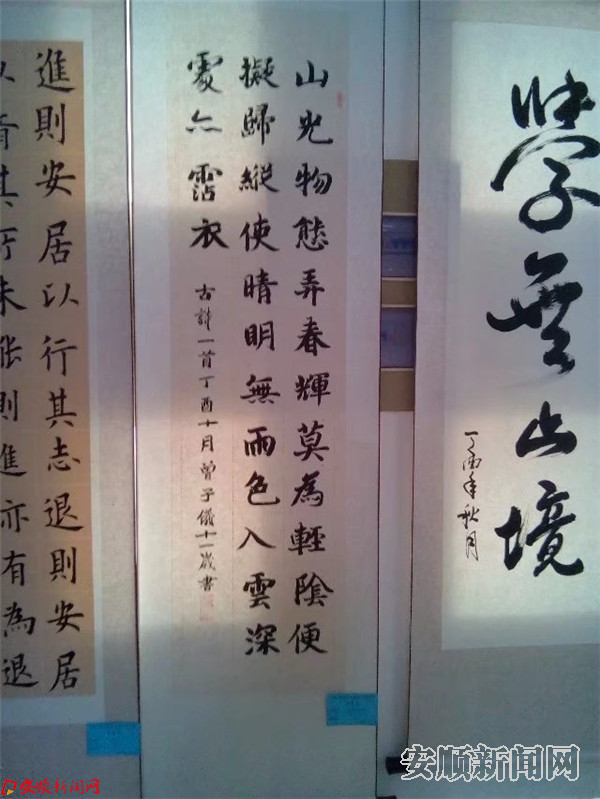 學無止境
丁酉年秋月
山光物態弄春輝莫為輕陰便
擬歸縱使晴明無雨色入雲深
處亦霑衣
古詩一首丁酉十月曾子儀十一歲書
進則安居以行其志退則安居
其所未能則進亦有為退
安顺新闻网
安顺新闻网